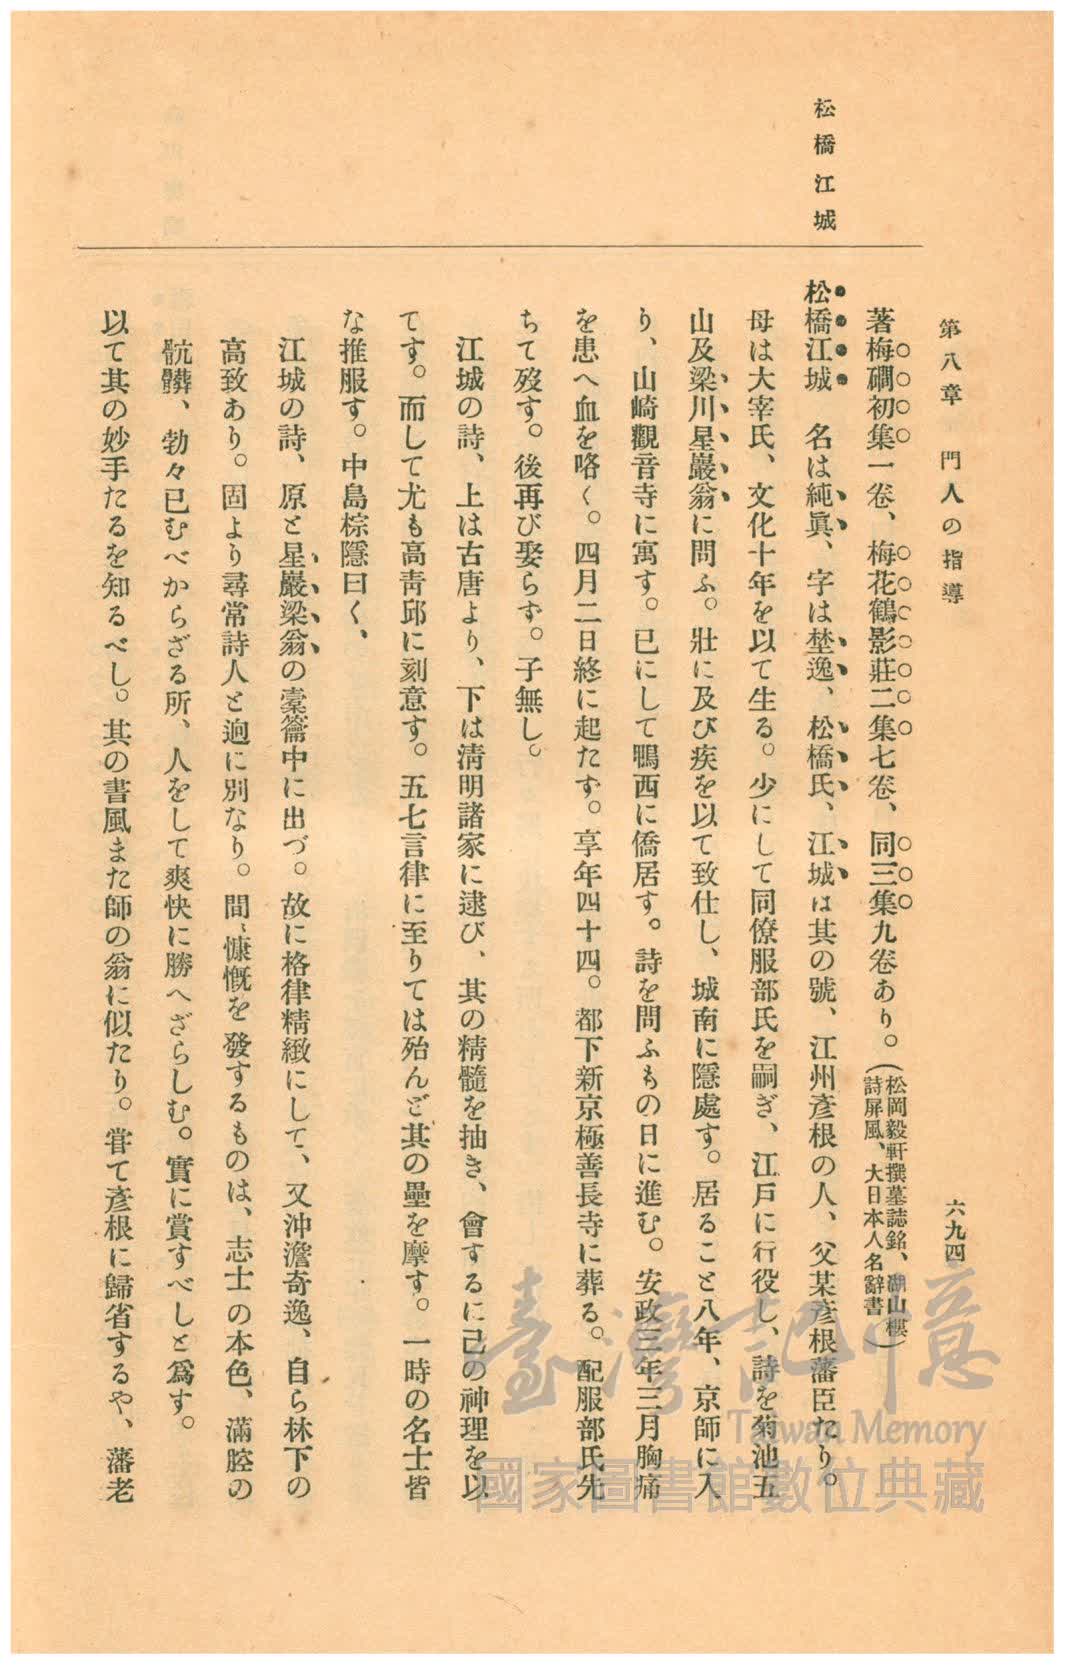 第八章 門人の指導
六九四
松橋江城
著梅磵初集一卷、梅花鶴影莊二集七卷、同三集九卷あり。(松岡毅軒撰墓誌銘、湖山樓
詩屏風、大日本人名辭書)
松橋江城 名は純眞、字は埜逸、松橋氏、江城は其の號、江州彥根の人、父某彥根藩臣たり。
母は大宰氏、文化十年を以て生る。少にして同僚服部氏を嗣ぎ、江戶に行役し、詩を菊池五
山及梁川星巖翁に問ふ。壯に及び疾を以て致仕し、城南に隱處す。居ること八年、京師に入
り、山崎觀音寺に寓す。已にして鴨西に僑居す。詩を問ふもの日に進む。安政三年三月胸痛
を患へ血を咯く。四月二日終に起たず。享年四十四。都下新京極善長寺に葬る。配服部氏先
ちて歿す。後再び娶らず。子無し。
江城の詩、上は古唐より、下は淸明諸家に逮び、其の精髓を抽き、會するに己の神理を以
てす。而して尤も高靑邱に刻意す。五七言律に至りては殆んど其の壘を摩す。一時の名士皆
な推服す。中島棕隱曰く、
江城の詩、原と星巖梁翁の橐籥中に出づ。故に格律精緻にして、又沖澹奇逸、自ら林下の
高致あり。固より尋常詩人と逈に別なり。間〻慷慨を發するものは、志士の本色、滿腔の
骯髒、勃々已むべからざる所、人をして爽快に勝へざらしむ。實に賞すべしと爲す。
以て其の妙手たるを知るべし。其の書風また師の翁に似たり。甞て彥根に歸省するや、藩老
臺灣記憶
Taiwan Memory
國家圖書館數位典藏